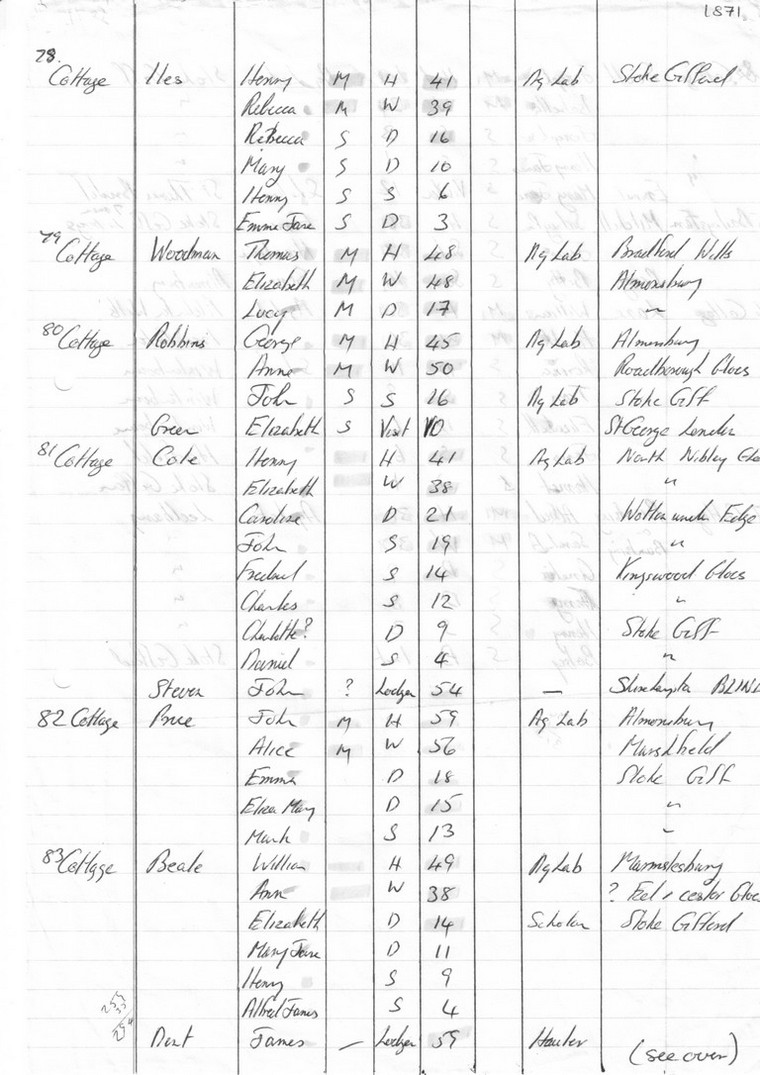 1871
78.
Cottage Iles Henry M H 41 Ag Lab Stoke Gifford
Rebecca M W 39
Rebecca S D 16
Mary S D 10
Henry S S 6
Emma Jane S D 3
79
Cottage Woodman Thomas M H 48 Ag Lab Bradford Wilts
Elizabeth M W 48 Almonsbury
Lucy M D 17 "
80 Cottage Robbins George M H 45 Ag Lab Almonsbury
Anne M W 50 Roadborough Glocs
John S S 16 Ag Lab Stoke Giff
Green Elizabeth S Visit 10 St George London
81 Cottage Cole Henry H 41 Ag Lab North Nibley
Elizabeth W 38 "
Caroline D 21 Wotton under Edge
John S 19 "
S 14 Kingswood Glocs
Charles S 12 "
Charlotte? D 9 Stoke Giff
Daniel S 4 "
Steven John ? Lodger 54 — BLIND
82 Cottage Price John M H 59 Ag Lab Almonsbury
Alice M W 56 Marshfield
Emma D 18 Stoke Giff
Eliza Mary D 15 "
Mark S 13 "
83 Cottage Beale William H 49 Ag Lab
Ann W 38 ?
Elizabeth D 14 Scholar Stoke Gifford
Mary Jane D 11
Henry S 9
Alfred James S 4
James – Lodger 59 (see over)